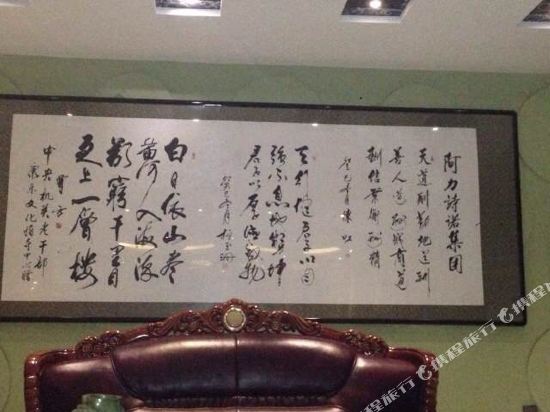 阿力诗诺集团
天道酬勤地道酬
善人道酬诚商道
酬信业道酬精
癸巳年
天行健君子以自
强不息地势坤
君子以厚德载物
癸巳年月
白日依山尽
黄河入海流
欲穷千里目
更上一层楼
中央机关老干部
携程旅行
携程旅行